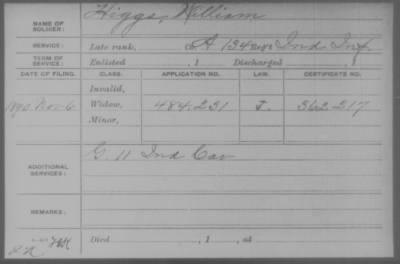 NAME OF SOLDIER: Higgs, William
SERVICE: Late rank, A 134 Ind Inf
TERM OF SERVICE: Enlisted , 1 Discharged , 1
DATE OF FILING. CLASS. APPLICATION NO. LAW. CERTIFICATE NO.
Invalid,
1890 Nov 6 Widow, 484.231 J. 362.217
Minor,
ADDITIONAL SERVICES: G. 11 Ind Cav
REMARKS:
Died , 1 , at